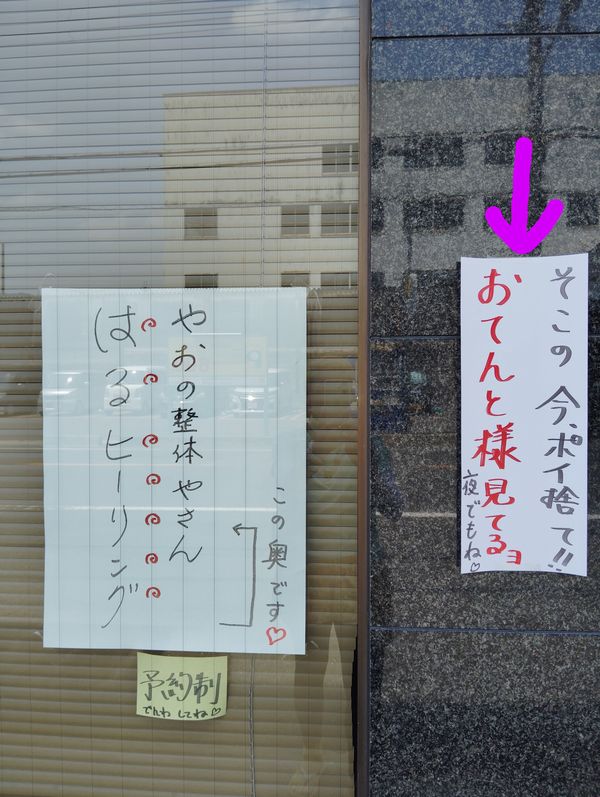 そこの今、ポイ捨て!!
おてんと様見てるヨ
夜でもね♡
この奥です♡
やおの整体やさん
はるヒーリング
予約制
でんわしてね♡